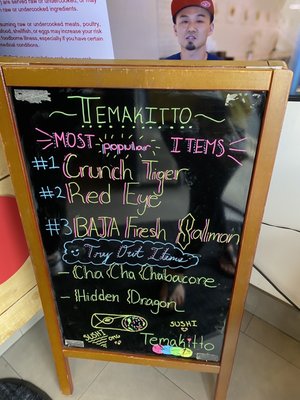 are served raw or undercooked, or may
raw or undercooked ingredients.
suming raw or undercooked meats, poultry,
food, shellfish, or eggs may increase your
foodborne illness, especially if you have certain
medical conditions.
~ TEMAKITTO ~
MOST popular ITEMS
#1 Crunch Tiger
#2 Red Eye
#3 BAJA Fresh Sallman
Try Out Items
- Cha Cha Chabacore
- Hidden Dragon
SUSHI
SUSHI
Temakitto